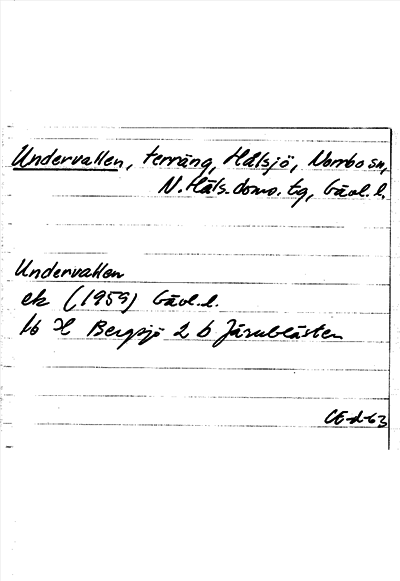 Undervallen, terräng, Hålsjö, Norrbo sn,
N. Häls. doms. tg, Gävl.l.
Undervallen
ek (1959) Gävl.l.
16 H Bergsjö 2 b Järnblästen
CE-d-63